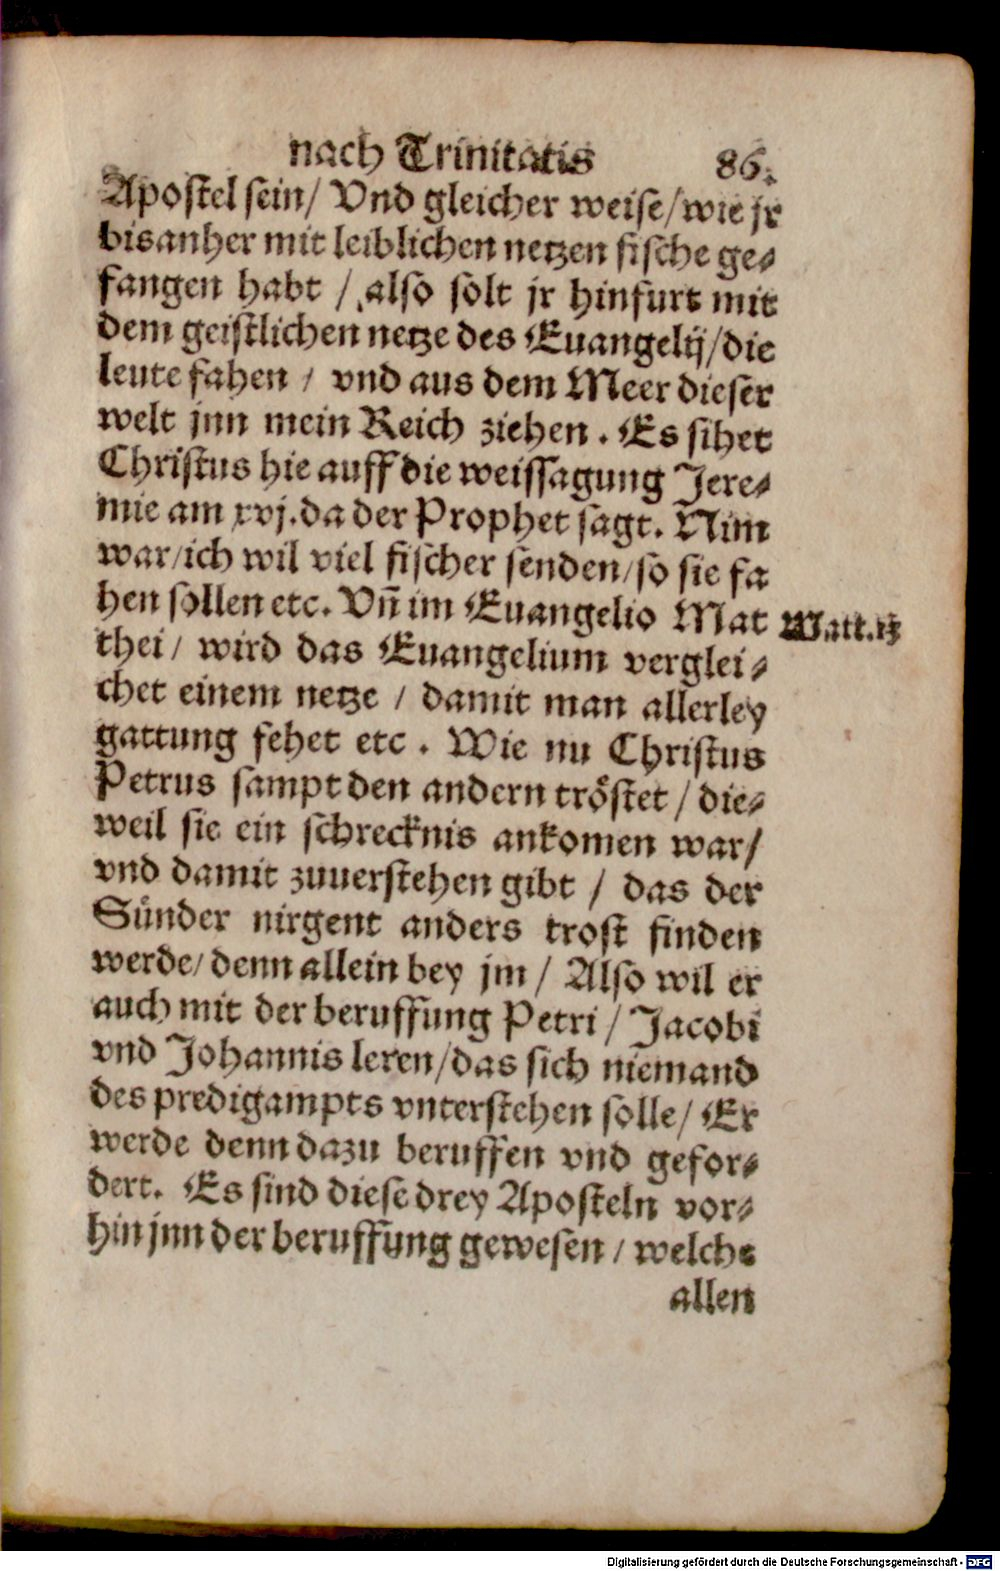 nach Trinitatis 86.
Apostel sein/ Vnd gleicher weise/wie jr
bisanher mit leiblichen netzen fische ge⸗
fangen habt / also solt jr hinfurt mit
dem geistlichen netze des Euangelij/die
leute fahen / vnd aus dem Meer dieser
welt jnn mein Reich ziehen . Es sihet
Christus hie auff die weissagung Jere⸗
mie am xvj.da der Prophet sagt. Nim
war/ich wil viel fischer senden/so sie fa
hen sollen etc. Vn̄ im Euangelio Mat
Matt.
thei/ wird das Euangelium verglei⸗
chet einem netze / damit man allerley
gattung fehet etc . Wie nu Christus
Petrus sampt den andern tröstet / die⸗
weil sie ein schrecknis ankomen war/
vnd damit zuuerstehen gibt / das der
Sünder nirgent anders trost finden
werde/ denn allein bey jm / Also wil er
auch mit der beruffung Petri / Jacobi
vnd Johannis leren/das sich niemand
des predigampts vnterstehen solle/ Er
werde denn dazu beruffen vnd gefor⸗
dert. Es sind diese drey Aposteln vor⸗
hin jnn der beruffung gewesen / welche
allen
Digitalisierung gefördert durch die Deutsche Forschungsgemeinschaft - DFG